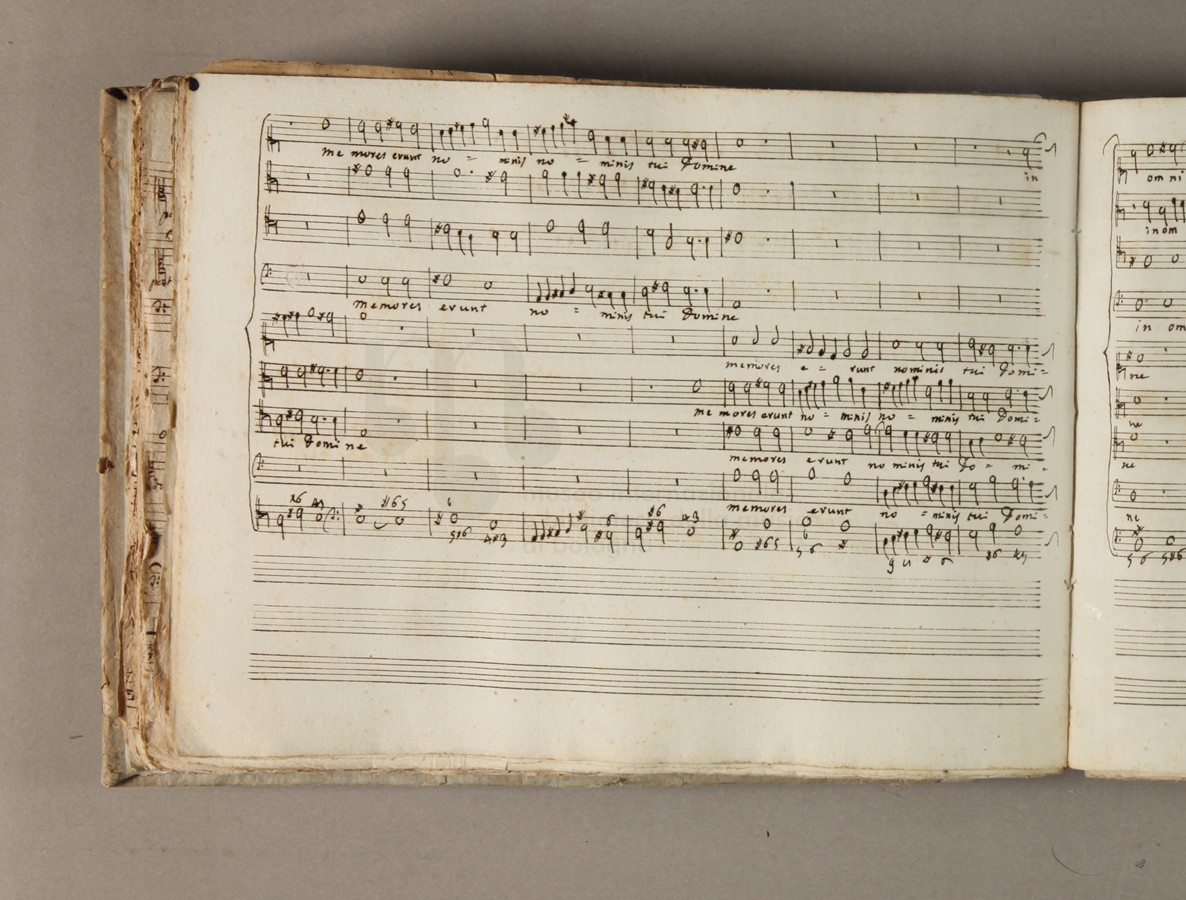 me mores erunt no = minis no = minis tui Domine
in
memores erunt no = minis tui Domine
memores e = runt nominis tui Domi =
me mores erunt no = minis no = minis tui Domi =
tui Domi ne
memores erunt no minis tui Do = mi =
memores erunt no = minis tui Domi =
om ni
in om
in om
ne
ne
ne
ne